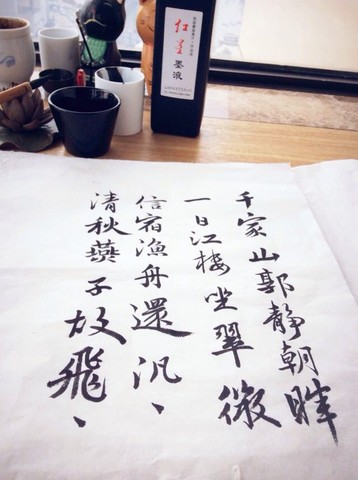 红星
墨液
千家山郭靜朝暉
一日江楼坐翠微
信宿漁舟還汎、
清秋燕子故飛、